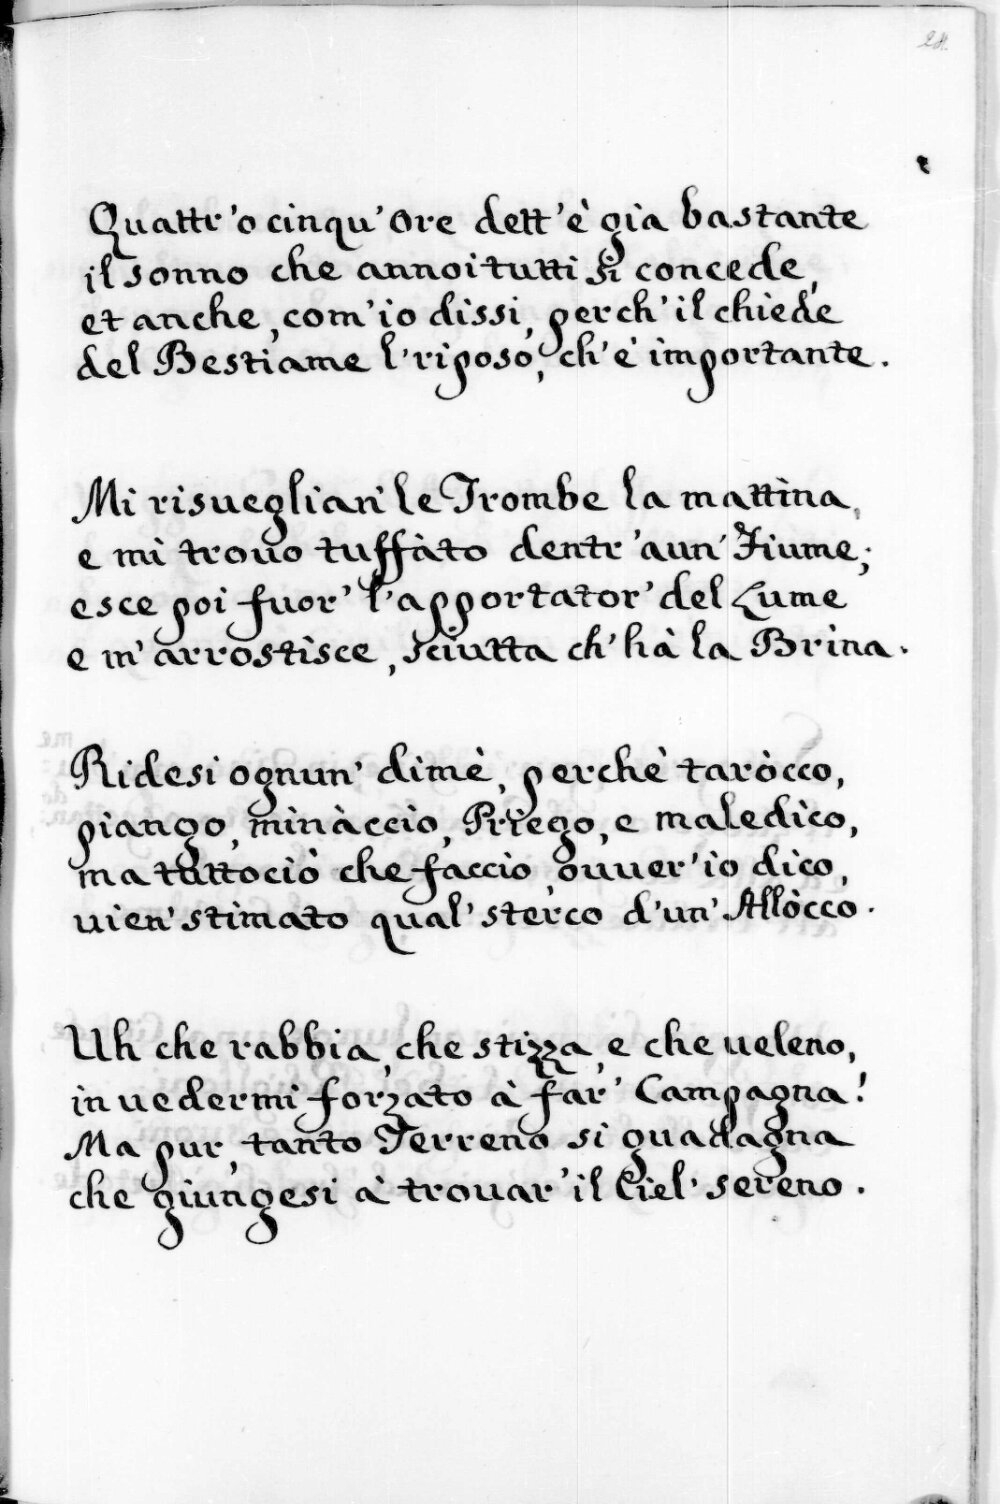 Quattr'o cinqu' Ore dett'è già bastante
il sonno che annoi tutti si concede,
et anche, com'io dissi, perch'il chiede
del Bestiame l'riposo, ch'è importante.
Mi risueglian' le Trombe la mattina,
e mi trouo tuffàto dentr'aun' Fiume;
esce poi fuor' l'apportator' del Lume
e m'arrostìsce, sciutta ch'hà la Brina.
Ridesi ognun' dimè, perchè taròcco,
piango, minàccio, Priego, e maledìco,
ma tuttociò che faccio, ouuer'io dico,
uien' stimato qual' sterco d'un' Allòcco.
Uh che rabbia, che stizza, e che ueleno,
in uedermi forzato à far' Campagna!
Ma pur, tanto Terreno si guadagna
che giungesi à trouar' il Ciel' sereno.